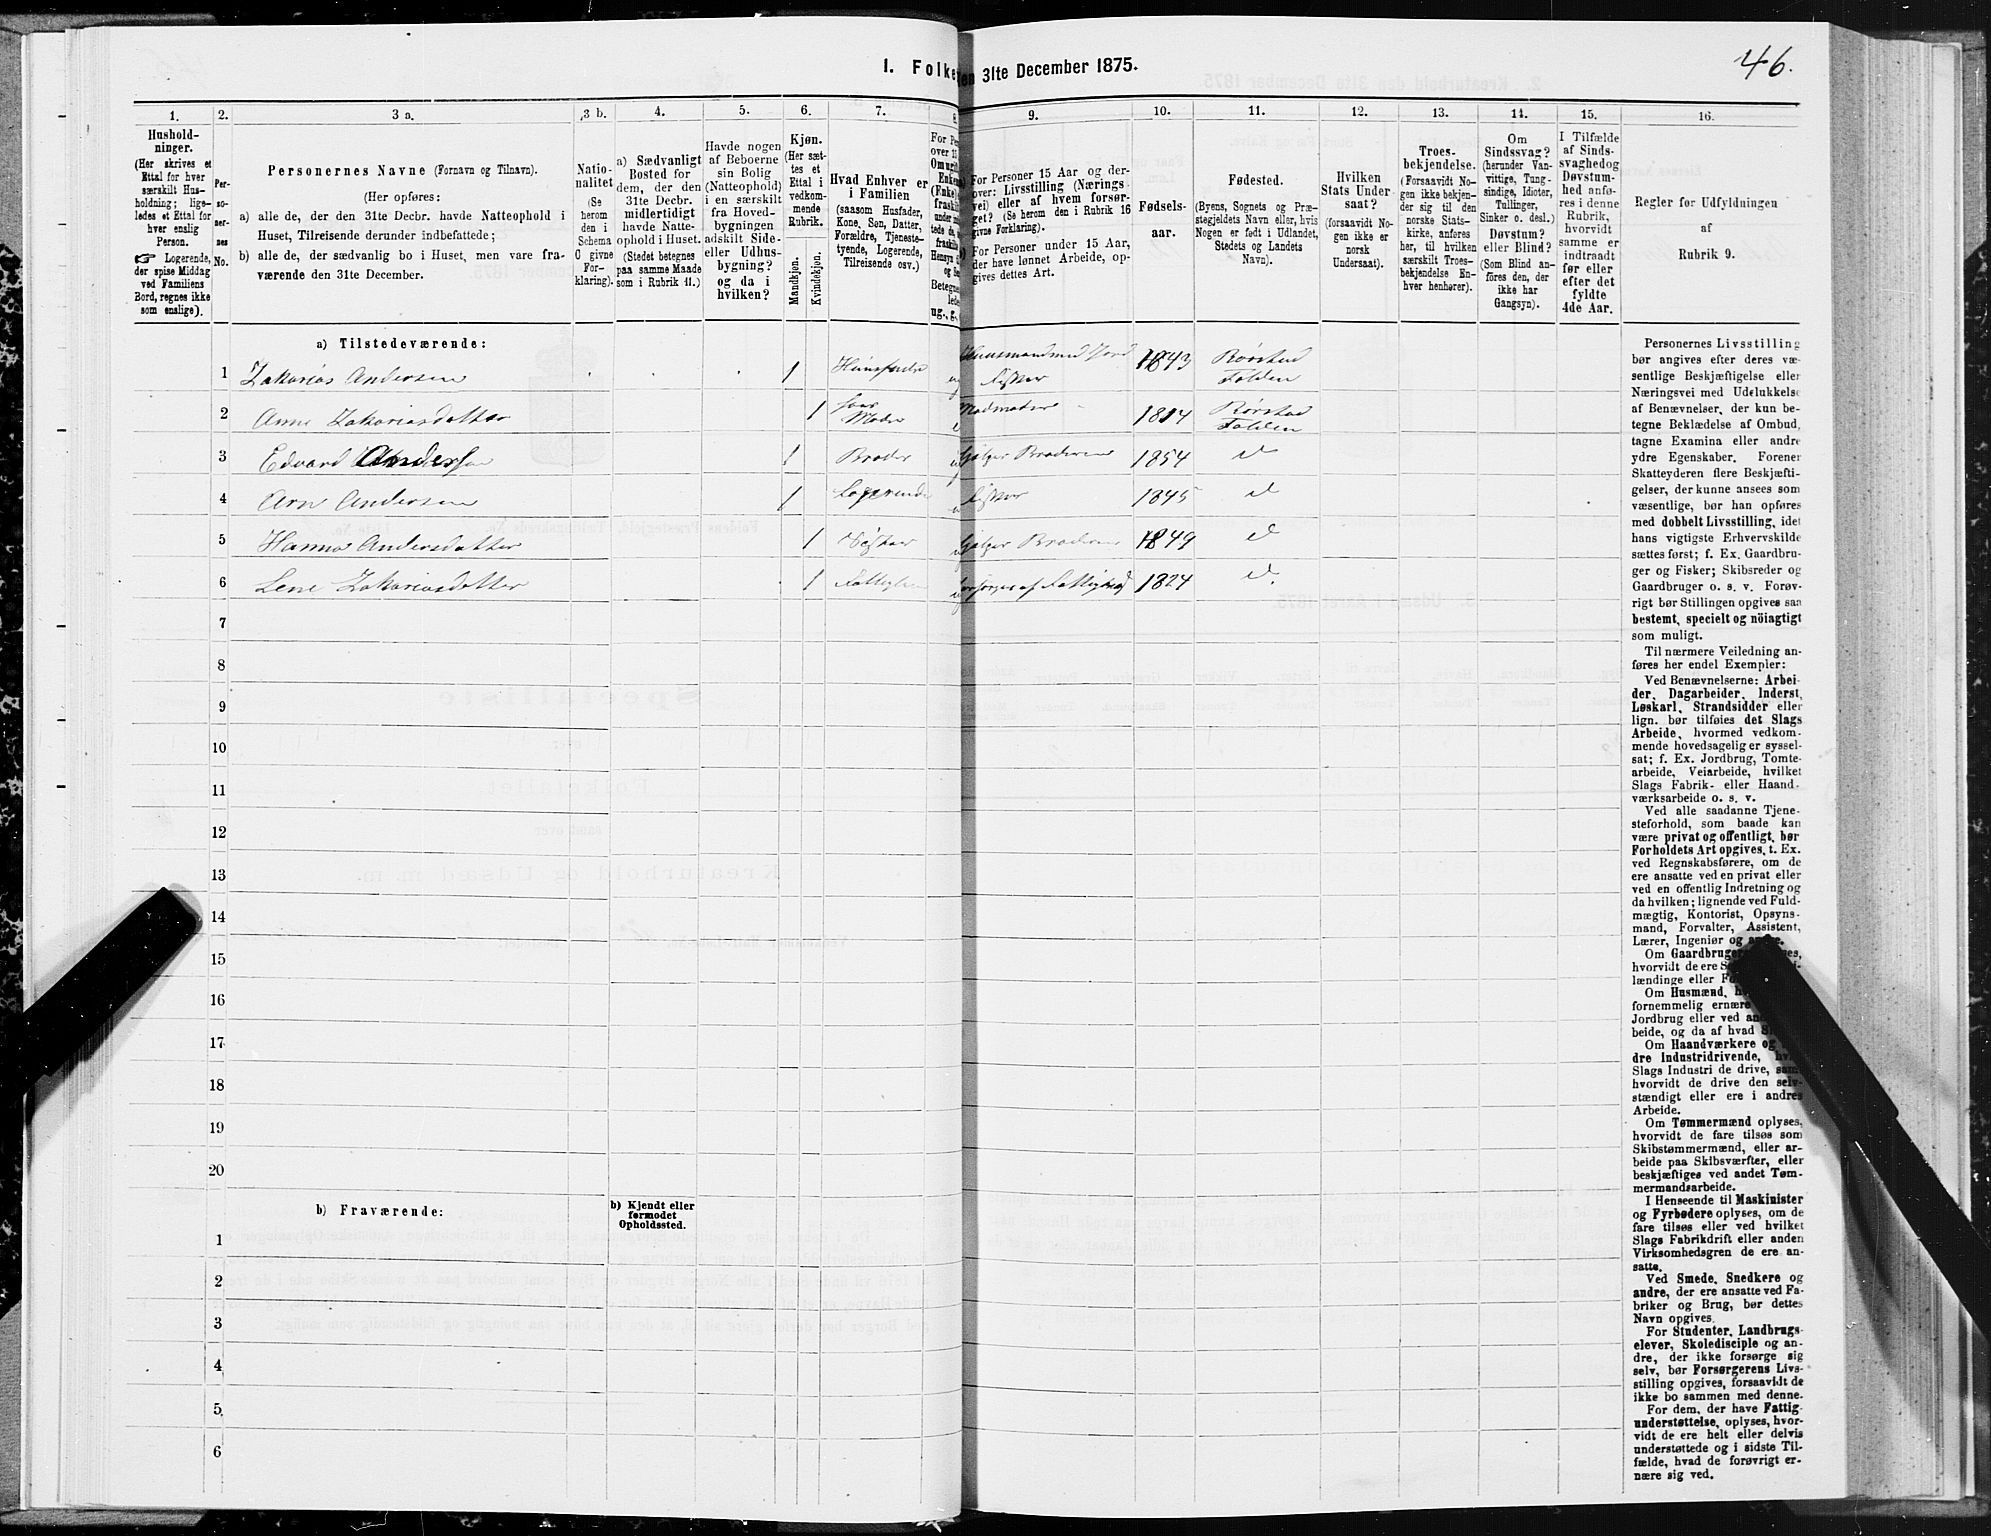 46.
1. Folke
en 31te December 1875.
1.
2.
3 a.
3 b.
4.
5.
6.
7.
8.
9.
10.
11.
12.
13.
14.
15.
16.
Hushold-
ninger.
(Her skrives et
Ettal for hver
særskilt Hus-
holdning; lige-
ledes et Ettal for
hver enslig
Person.
☞ Logerende,
der spise Middag
ved Familiens
Bord, regnes ikke
som enslige).
Per-
so-
ner-
nes
No.
Personernes Navne (Fornavn og Tilnavn).
(Her opføres:
a) alle de, der den 31te Decbr. havde Natteophold i
Huset, Tilreisende derunder indbefattede;
b) alle de, der sædvanlig bo i Huset, men vare fra-
værende den 31te December.
Natio-
nalitet
(Se
herom
den i
Schema
C givne
For-
klaring).
a) Sædvanligt
Bosted for
dem, der den
31te Decbr.
midlertidigt
havde Natte-
ophold i Huset.
(Stedet betegnes
paa samme Maade
som i Rubrik 11.)
Havde nogen
af Beboerne
sin Bolig
(Natteophold)
i en særskilt
fra Hoved-
bygningen
adskilt Side-
eller Udhus-
bygning?
og da i
hvilken?
Kjøn.
(Her sæt-
tes et
Ettal i
vedkom-
mende
Rubrik.
Mandkjøn.
Kvindekjøn.
Hvad Enhver er
i Familien
(saasom Husfader,
Kone, Søn, Datter,
Forældre, Tjeneste-
tyende, Logerende,
Tilreisende osv.)
For Pe
over 15
Omugif
Enkem
(Enke),
fraskil
under
tede da
fraski
Hensyn t
og Se
Betegne
lede
ug., g.,
For Personer 15 Aar og der-
over: Livsstilling (Nærings
vei) eller af hvem forsør-
get? (Se herom den i Rubrik 16
givne Forklaring).
For Personer under 15 Aar,
der have lønnet Arbeide, op-
gives dettes Art.
Fødsels-
aar.
Fødested.
(Byens, Sognets og Præ-
stegjeldets Navn eller, hvis
Nogen er født i Udlandet,
Stedets og Landets
Navn).
Hvilken
Stats Under
saat?
(forsaavidt No-
gen ikke er
norsk
Undersaat).
Troes-
bekjendelse.
(Forsaavidt No-
gen ikke bekjen-
der sig til den
norske Stats-
kirke, anføres
her, til hvilken
særskilt Troes-
bekjendelse En-
hver henhører).
Om
Sindssvag?
(herunder Van-
vittige, Tung-
sindige, Idioter,
Tullinger,
Sinker o. desl.)
Døvstum?
eller Blind?
(Som Blind an-
føres den, der
ikke har
Gangsyn).
I Tilfælde
af Sinds-
svaghed og
Døvstum-
hed anfø-
res i denne
Rubrik,
hvorvidt
samme er
indtraadt
før eller
efter det
fyldte
4de Aar.
Regler for Udfyldningen
af
Rubrik 9.
a) Tilstedeværende:
1 Zakarias Andersen 1 Huusfader Huusmand med Jord Fisker 1843 Rørstad Folden
2 Anne Zakariasdatter 1 Moder Madmoder 1814 Rørstad Folden
3 Edvard Andersen 1 Broder hjelper Broderen 1854 d
4 Arn Andersen 1 Logerende Fisker 1845 d
5 Hanna Andersdatter 1 Søster hjelper Broderen 1849 d
6 Lene Zakariasdatter 1 Fattiglem forsørges af Fattigvæs 1824 d.
7
8
9
10
11
12
13
14
15
16
17
18
19
20
b) Fraværende:
b) Kjendt eller
formodet
Opholdssted.
1
2
3
4
5
6
Personernes Livsstilling
bør angives efter deres væ-
sentlige Beskjæftigelse eller
Næringsvei med Udelukkelse
af Benævnelser, der kun be-
tegne Beklædelse af Ombud,
tagne Examina eller andre
ydre Egenskaber. Forener
Skatteyderen flere Beskjæfti-
gelser, der kunne ansees som
væsentlige, bør han opføres
med dobbelt Livsstilling, idet
hans vigtigste Erhvervskilde
sættes først; f. Ex. Gaardbru-
ger og Fisker; Skibsreder og
Gaardbruger o. s. v. Forøv-
rigt bør Stillingen opgives saa
bestemt, specielt og nöiagtigt
som muligt.
Til nærmere Veiledning an-
føres her endel Exempler:
Ved Benævnelserne: Arbei-
der, Dagarbeider, Inderst,
Løskarl, Strandsidder eller
lign. bør tilføies det Slags
Arbeide, hvormed vedkom-
mende hovedsagelig er syssel-
sat; f. Ex. Jordbrug, Tomte-
arbeide, Veiarbeide, hvilket
Slags Fabrik- eller Haand-
værksarbeide o. s. v.
Ved alle saadanne Tjene-
steforhold, som baade kan
være privat og offentligt, bør
Forholdets Art opgives, t. Ex.
ved Regnskabsførere, om de
ere ansatte ved en privat eller
ved en offentlig Indretning og
da hvilken; lignende ved Fuld-
mægtig, Kontorist, Opsyns-
mand, Forvalter, Assistent,
Lærer, Ingeniør og andre.
Om Gaardbruger
hvorvidt de ere
lændinge eller
Om Husmænd,
fornemmelig ernære
Jordbrug eller ved
beide, og da af hvad
Om Haandværkere og
dre Industridrivende,
Slags Industri de drive,
hvorvidt de drive den selv-
stændigt eller ere i andres
Arbeide.
Om Tømmermænd oplyses,
hvorvidt de fare tilsøs som
Skibstømmermænd, eller ar-
beide paa Skibsværfter, eller
beskjæftiges ved andet Tøm-
mermandsarbeide.
I Henseende til Maskinister
og Fyrbødere oplyses, om de
fare tilsøs eller ved hvilket
Slags Fabrikdrift eller anden
Virksomhedsgren de ere an-
satte.
Ved Smede, Snedkere og
andre, der ere ansatte ved Fa-
briker og Brug, bør dettes
Navn opgives.
For Studenter, Landbrugs-
elever, Skoledisciple og an-
dre, der ikke forsørge sig
selv, bør Forsørgerens Livs-
stilling opgives, forsaavidt de
ikke bo sammen med denne.
For dem, der have Fattig-
understøttelse, oplyses, hvor-
vidt de ere helt eller delvis
understøttede og i sidste Til-
fælde, hvad de forøvrigt er-
nære sig ved.